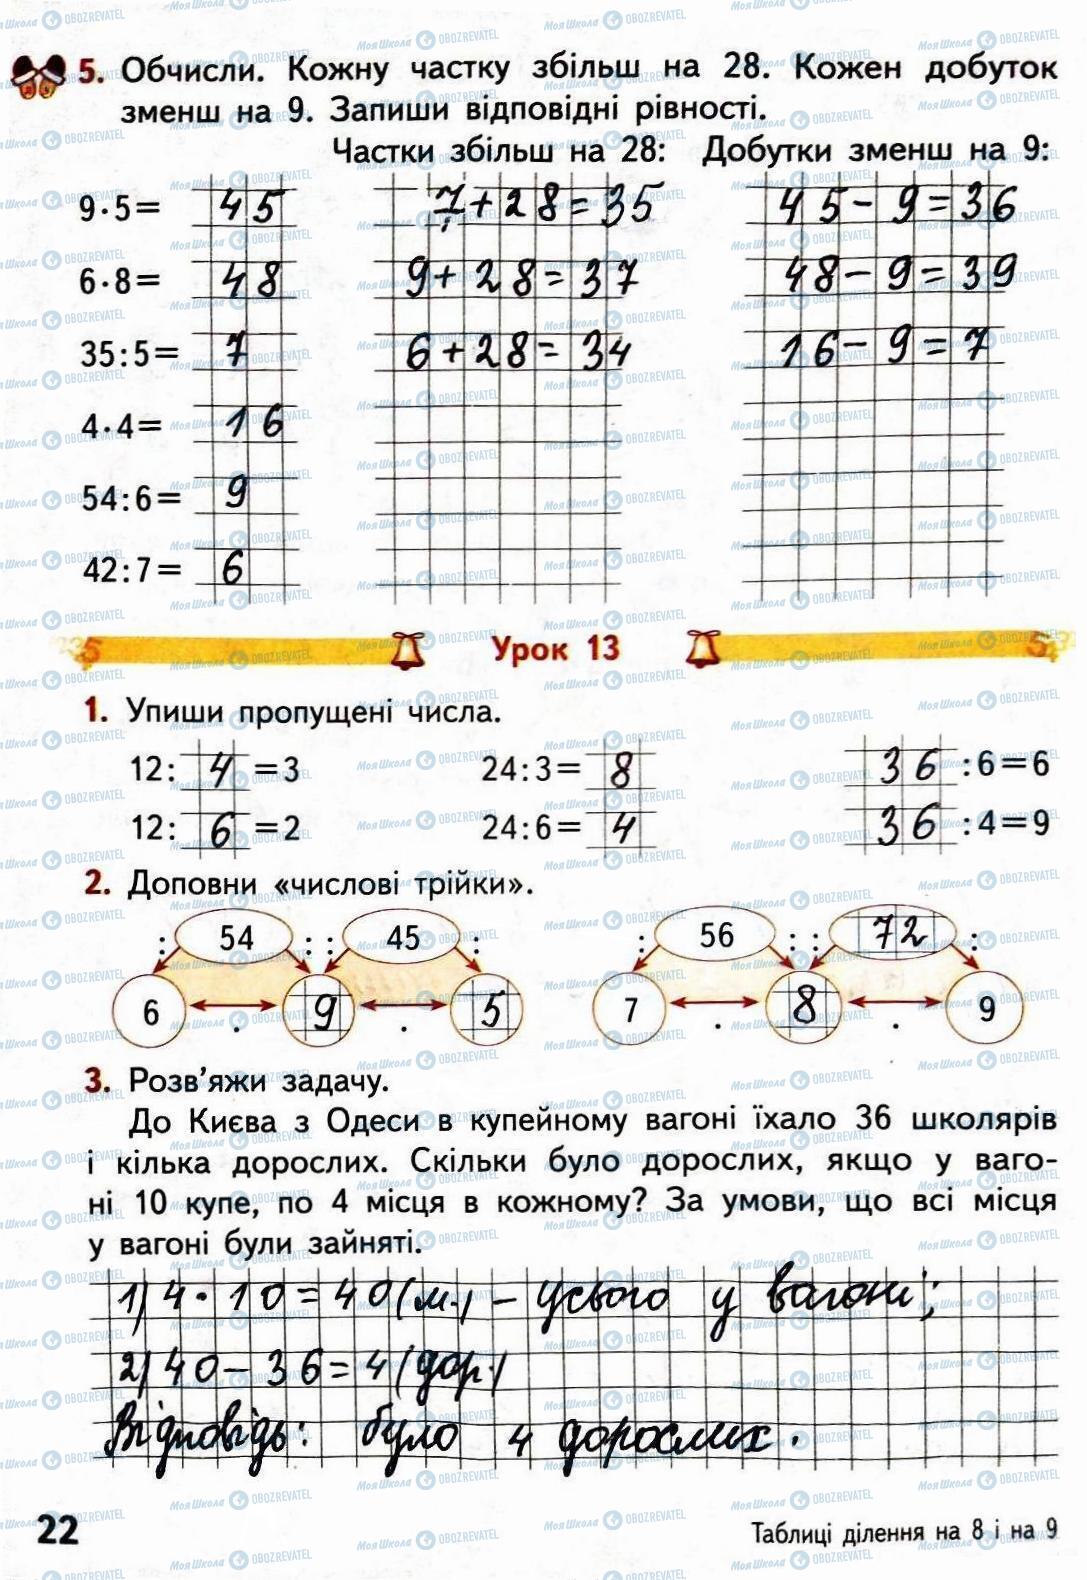 5. Обчисли. Кожну частку збільш на 28. Кожен добуток
зменш на 9. Запиши відповідні рівності.
Частки збільш на 28: Добутки зменш на 9:
9·5= 45 7+28=35 45-9=36
6·8= 48 9+28=37 48-9=39
35:5= 7 6+28=34 16-9=7
4·4= 16
54:6= 9
42:7= 6
Урок 13
1. Упиши пропущені числа.
12: 4 =3 24:3= 8 36 :6=6
12: 6 =2 24:6= 4 36 :4=9
2. Доповни «числові трійки».
: 54 : : 45 : : 56 : : 72 :
6 · 9 · 5 7 · 8 · 9
3. Розв'яжи задачу.
До Києва з Одеси в купейному вагоні їхало 36 школярів
і кілька дорослих. Скільки було дорослих, якщо у ваго-
ні 10 купе, по 4 місця в кожному? За умови, що всі місця
у вагоні були зайняті.
1) 4·10=40(м.) – усього у вагоні;
2) 40-36=4(дор.)
Відповідь: було 4 дорослих.
22 Таблиці ділення на 8 і на 9
МояШкола OBOZREVATEL